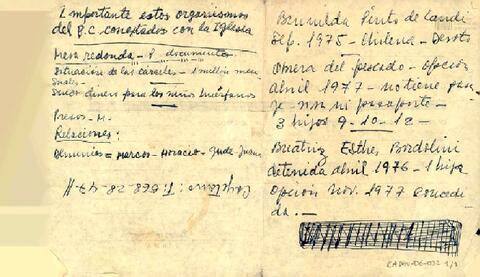 Importante estos organismos
del P.C. conectados con la Iglesia
Mesa redonda - P. documentos
Situación de las cárceles - 1 millón men
suales
Sueor dinero para los niños huérfanos
Presos - H.
Relaciones:
Denuncias = Marcos - Horacio - Jude - Juana
Brunilda Pinto de Landi
Sep. 1975 - Chilena - Devoto
obrera del pescado - opción
abril 1977 - no tiene pasa
je - ni pasaporte -
3 hijos 9 - 10 - 12 -
Beatriz Esther Bordolini
detenida abril 1976 - 1 hija
opción nov. 1977 concedi
da. -